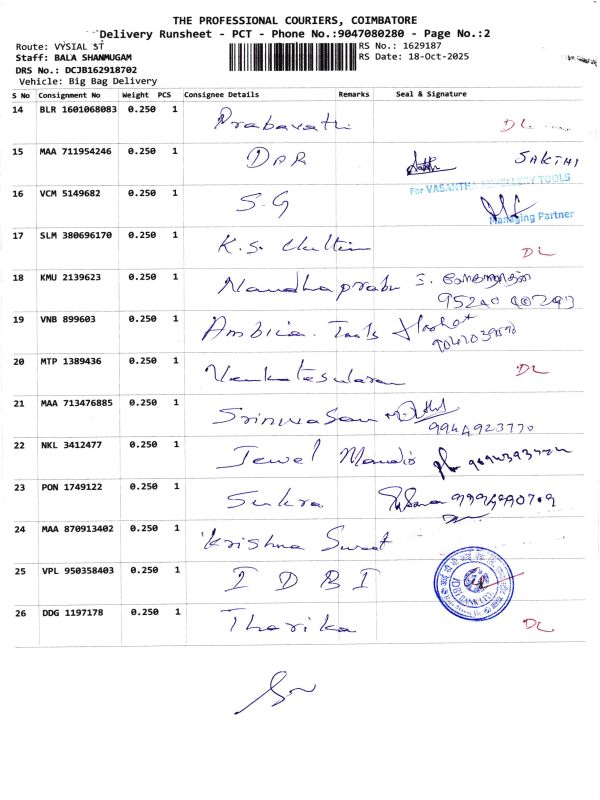 THE PROFESSIONAL COURIERS, COIMBATORE
Delivery Runsheet - PCT - Phone No.:9047080280 - Page No.:2
Route: VYSIAL ST
RS No.: 1629187
Staff: BALA SHANMUGAM
RS Date: 18-Oct-2025
DRS No.: DCJB162918702
Vehicle: Big Bag Delivery
S No Consignment No Weight PCS Consignee Details Remarks Seal & Signature
14 BLR 1601068083 0.250 1 Prabavathi DL
15 MAA 711954246 0.250 1 DPR SAKTHI
For VASANTHA JEWELLERY TOOLS
16 VCM 5149682 0.250 1 S.G
Managing Partner
17 SLM 380696170 0.250 1 K.S. DL
18 KMU 2139623 0.250 1 Nandhaprabu
19 VNB 899603 0.250 1 Ambica. Tools
20 MTP 1389436 0.250 1 Venkateswaran DL
21 MAA 713476885 0.250 1 Srinivasan
9944923770
22 NKL 3412477 0.250 1 Jewel
23 PON 1749122 0.250 1 Sukra
24 MAA 870913402 0.250 1 Krishna Sweet
25 VPL 950358403 0.250 1 IDBI
IDBI BANK LTD.
26 DDG 1197178 0.250 1 Tharika DL